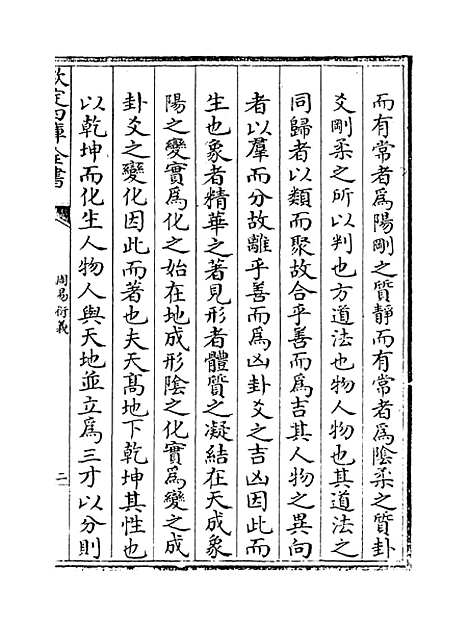 而有常者爲陽剛之質靜而有常者爲陰柔之質卦
爻剛柔之所以判也方道法也物人物也其道法之
同歸者以類而聚故合乎善而爲吉其人物之異向
者以羣而分故離乎善而爲凶卦爻之吉凶因此而
生也象者精華之著見形者體質之凝結在天成象
陽之變實爲化之始在地成形陰之化實爲變之成
卦爻之變化因此而著也夫天高地下乾坤其性也
以乾坤而化生人物人與天地並立爲三才以分則
欽定四庫全書
周易衍義
二